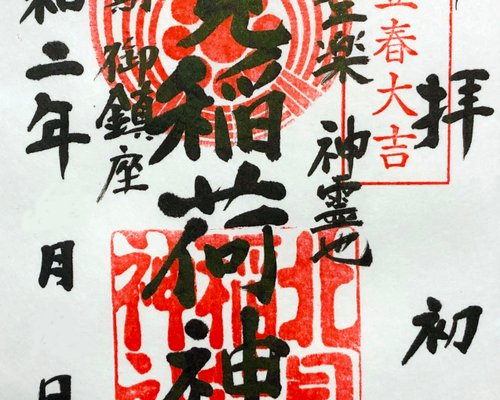 拝 初
春大吉
楽 神霊也
稲荷神
御鎮座
和二年 月 日
北
稲
神